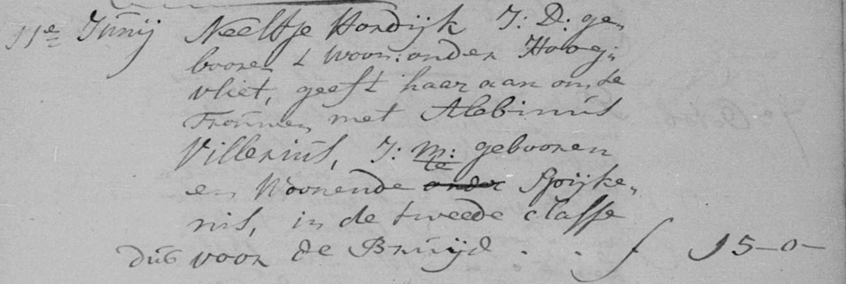 11e Junij Neeltje Hordijk J: D: ge„
booren & Woon: onder Hoog„
vliet, geeft haar aan om te
Trouwen met Alebinus
Villerius, J: M: gebooren
en Woonende onder te Spijke„
nis, in de tweede Classe
dus voor de Bruijd . . f 15-0-